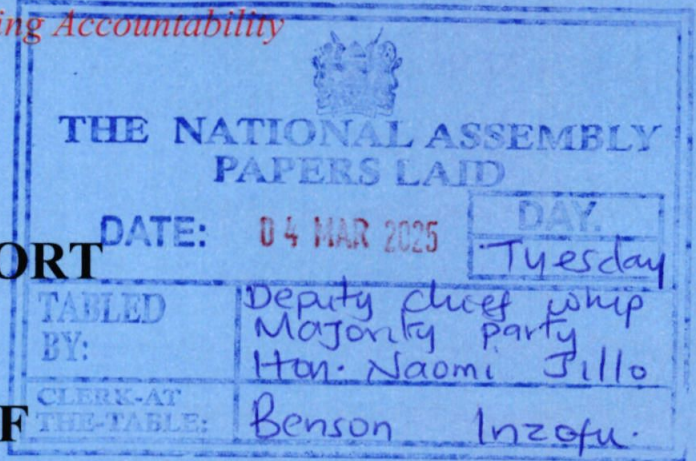 ing Accountability
THE NATIONAL ASSEMBLY
PAPERS LAID
DATE: 04 MAR 2025
DAY.
Tuesday
ORT
TABLED BY:
Deputy chief whip
Majority party
Hon. Naomi Jillo
CLERK-AT THE-TABLE:
Benson Inzofu.
F